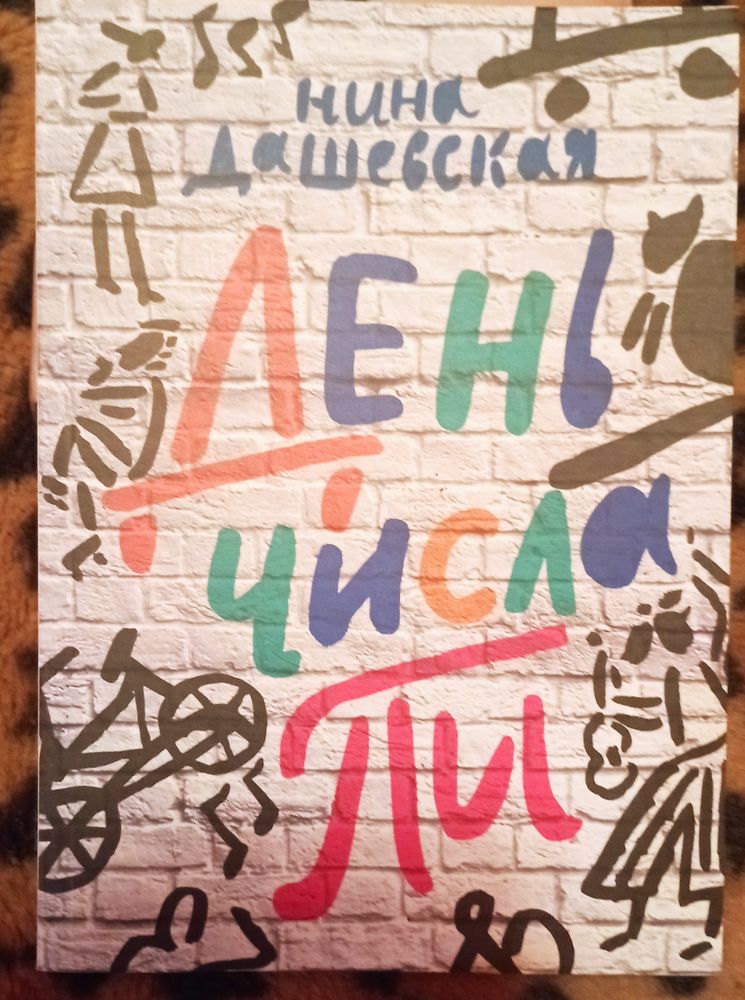 нина
дашевская
День
числа
Пи